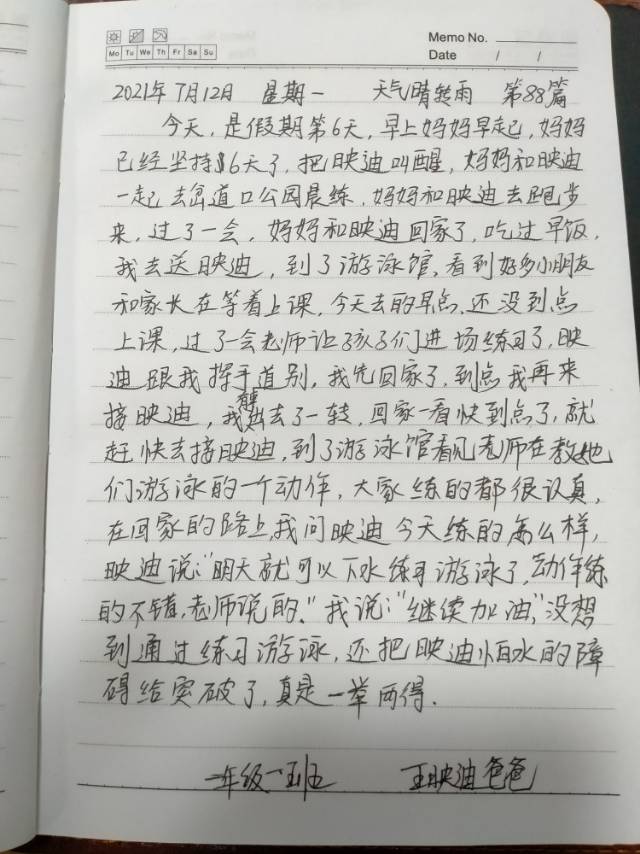 Memo No.
Mo Tu We Th Fr Sa Su
Date / /
2021年7月12日 星期一 天气晴转雨 第88篇
今天,是假期第6天,早上妈妈早起,妈妈
已经坚持6天了,把映迪叫醒,妈妈和映迪
一起去岔道口公园晨练,妈妈和映迪去跑步
来,过了一会,妈妈和映迪回家了,吃过早饭,
我去送映迪,到了游泳馆,看到好多小朋友
和家长在等着上课,今天去的早点,还没到点
上课,过了一会老师让孩子们进场练习了,映
迪跟我挥手道别,我先回家了,到点我再来
接映迪,我出去了一转,回家一看快到点了,就
赶快去接映迪,到了游泳馆看见老师在教她
们游泳的一个动作,大家练的都很认真,
在回家的路上,我问映迪今天练的怎么样,
映迪说:“明天就可以下水练习游泳了,动作练
的不错,老师说的.”我说:“继续加油,”没想
到通过练习游泳,还把映迪怕水的障
碍给突破了,真是一举两得.
一年级一班 王映迪爸爸